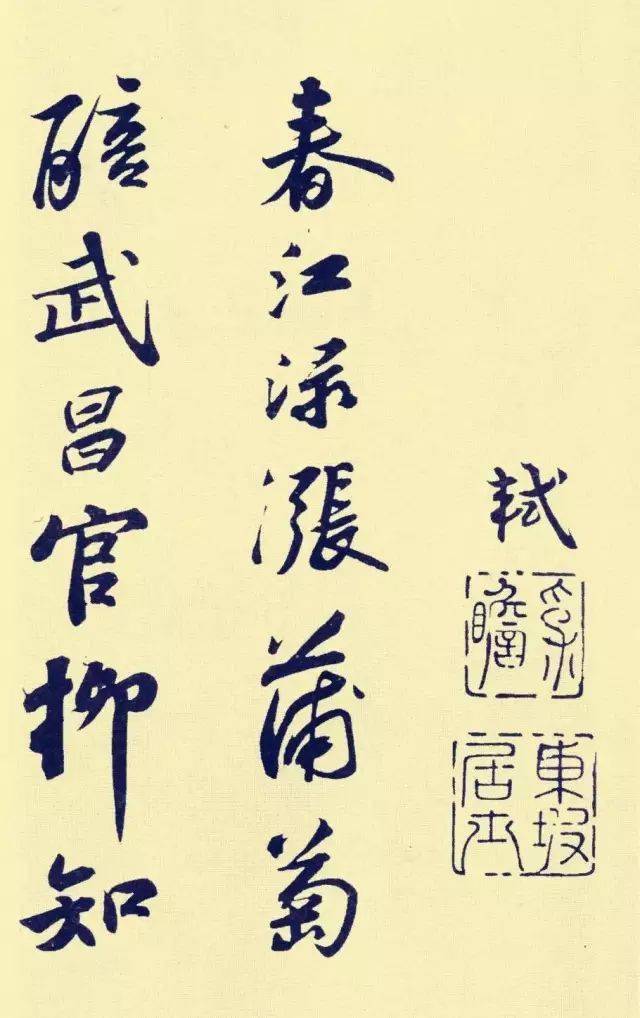 軾
東坡居士
春江渌漲蒲萄
醅武昌官柳知